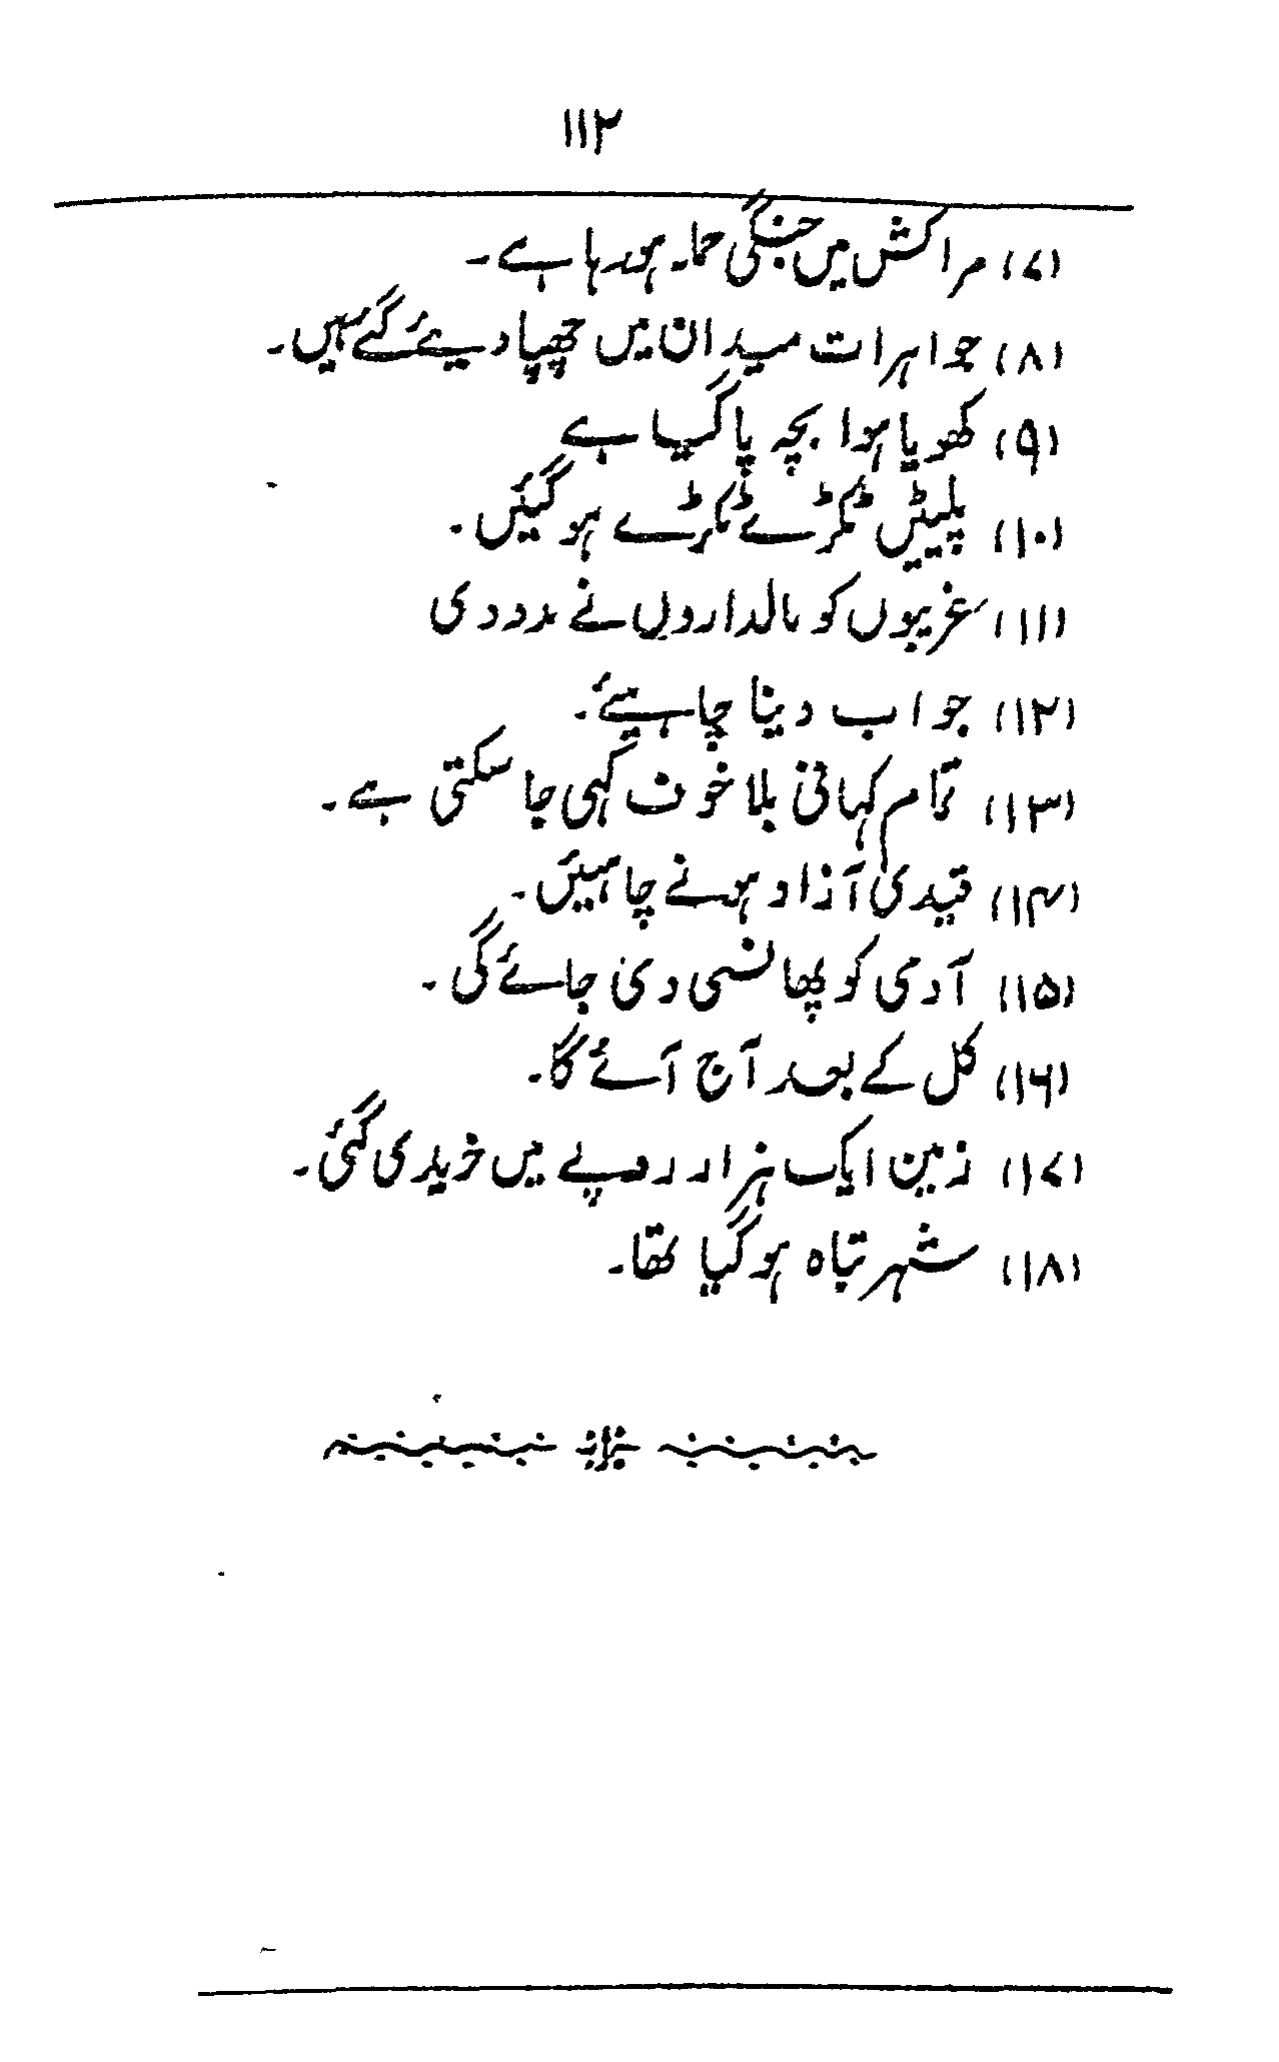 ۱۱۲
(۷) مراکش میں جنگی حملہ ہو رہا ہے۔
(۸) جواہرات میدان میں چھپا دیئے گئے ہیں۔
(۹) کھویا ہوا بچہ پا گیا ہے
(۱۰) پلیٹیں ٹکڑے ٹکڑے ہو گئیں۔
(۱۱) غریبوں کو مالداروں نے مدد دی
(۱۲) جواب دینا چاہیئے۔
(۱۳) تمام کہانی بلا خوف کہی جا سکتی ہے۔
(۱۴) قیدی آزاد ہونے چاہئیں۔
(۱۵) آدمی کو پھانسی دی جائے گی۔
(۱۶) کل کے بعد آج آئے گا۔
(۱۷) زمین ایک ہزار روپے میں خریدی گئی۔
(۱۸) شہر تباہ ہو گیا تھا۔